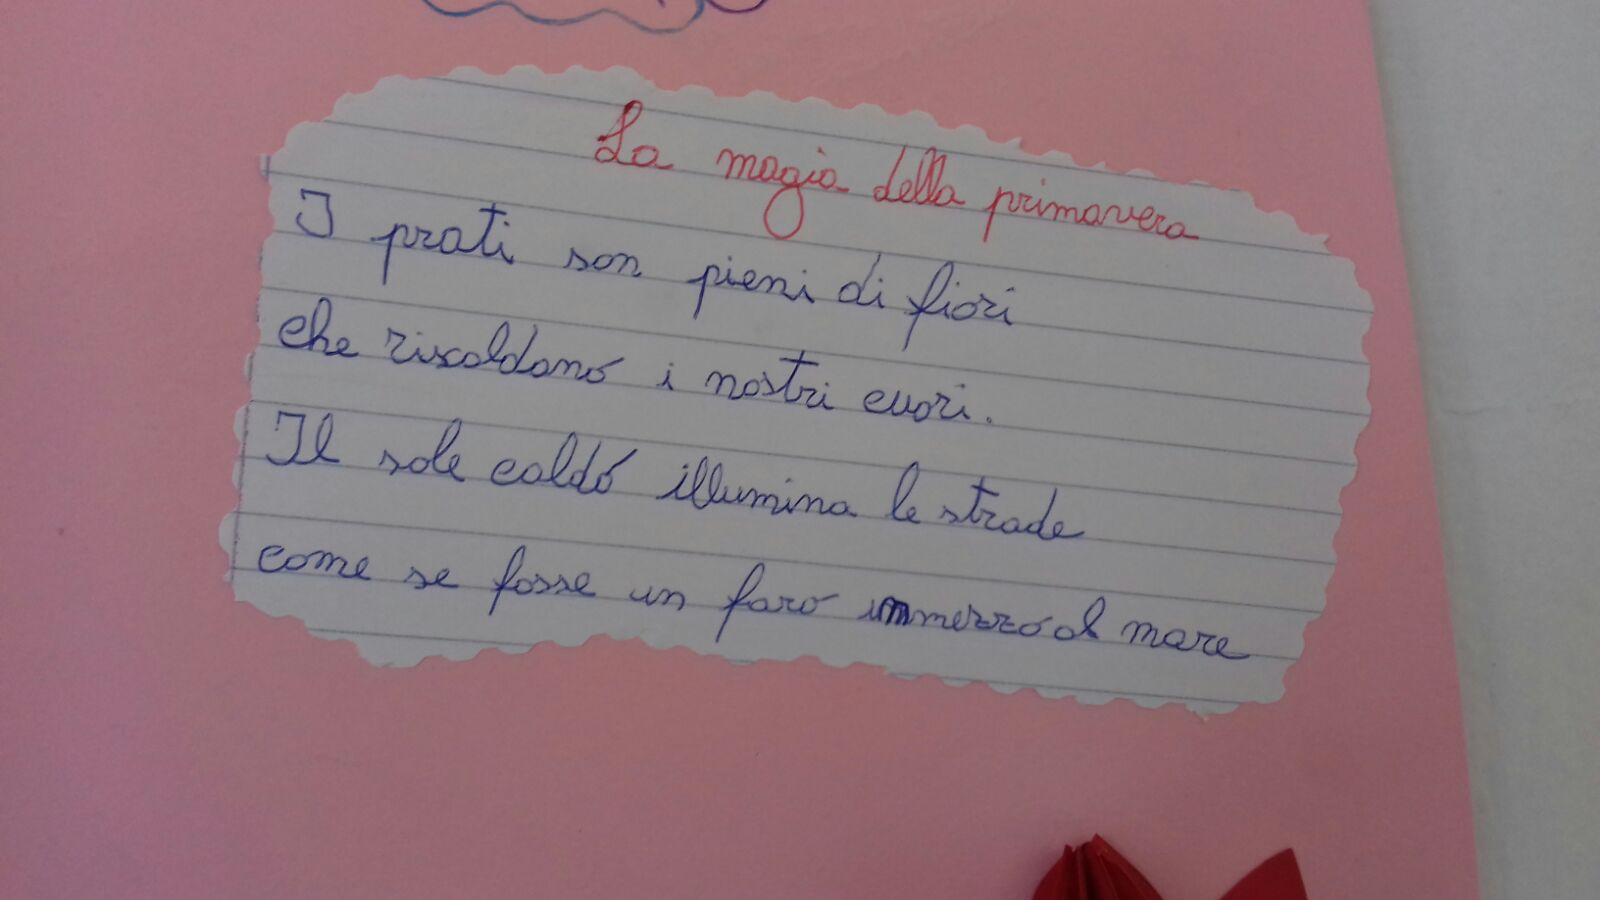 La magia della primavera
I prati son pieni di fiori
che riscaldano i nostri cuori.
Il sole caldo illumina le strade
come se fosse un faro immezzo al mare